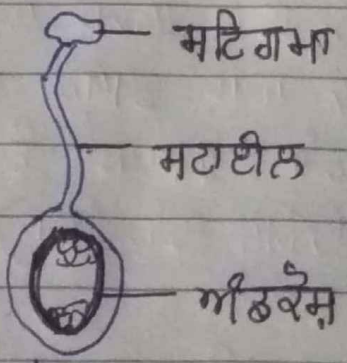 ਸਟਿਗਮਾ
ਸਟਾਈਲ
ਅੰਡਕੋਸ਼